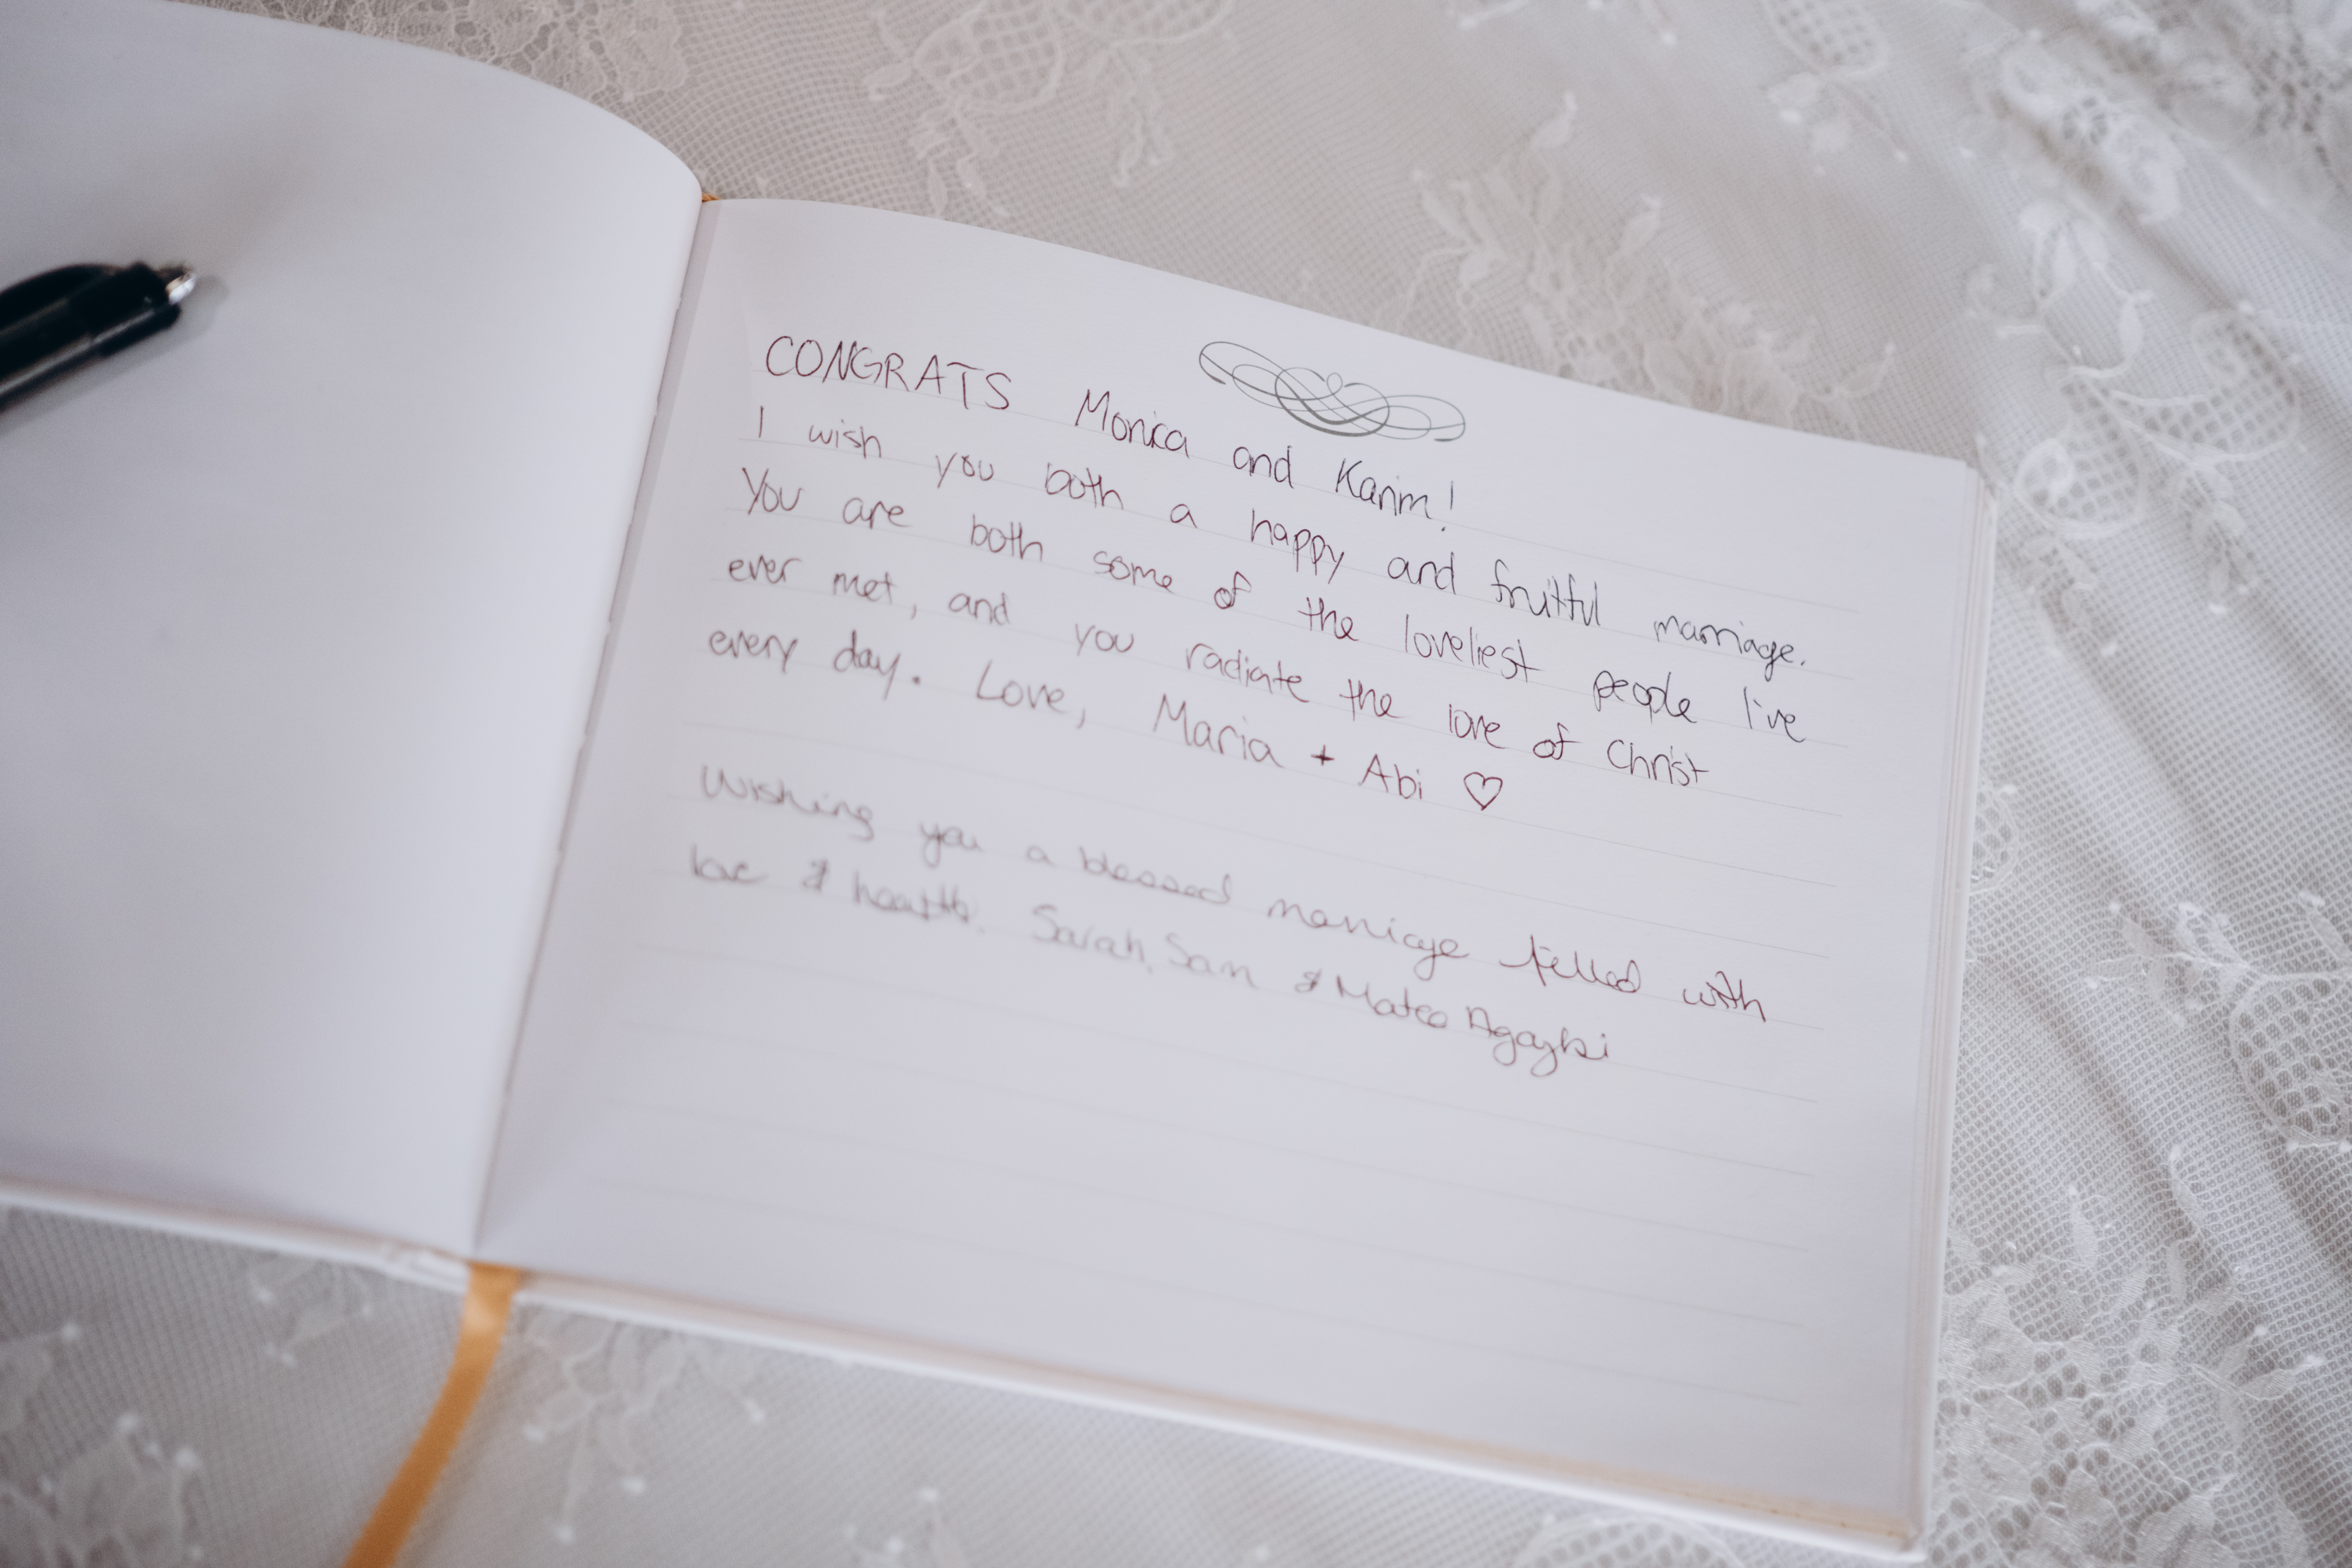 CONGRATS Monica and Karim!
I wish you both a happy and fruitful marriage.
You are both some of the loveliest people I've
ever met, and you radiate the love of Christ
every day. Love, Maria + Abi ♡
Wishing you a blessed marriage filled with
love & health. Sarah, Sam & Mateo Agaybi